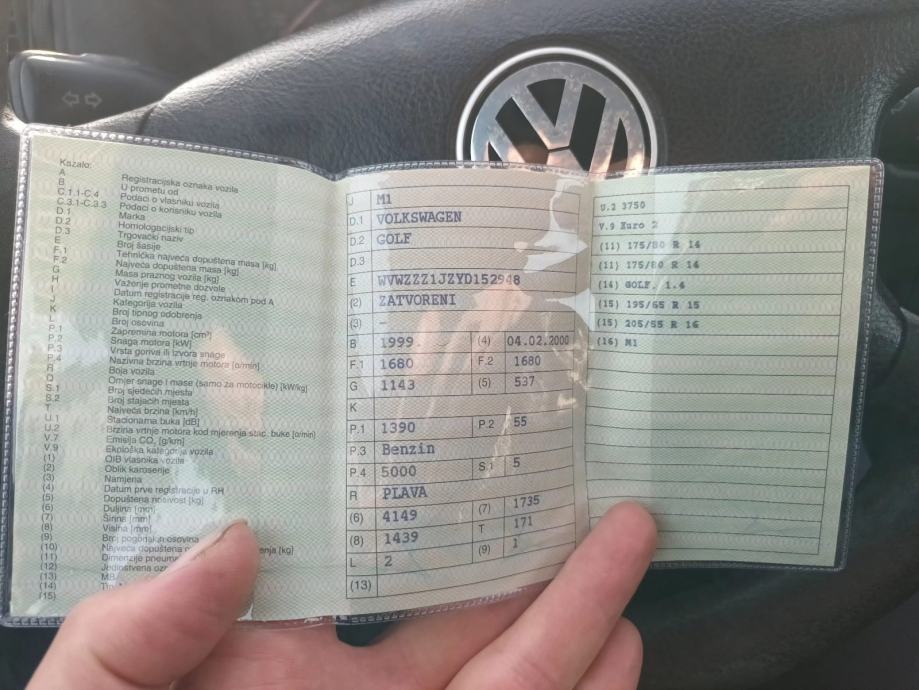 Kazalo:
A Registracijska oznaka vozila
B U prometu od
C.1.1-C.4 Podaci o vlasniku vozila
C.3.1-C.3.3 Podaci o korisniku vozila
D.1 Marka
D.2 Homologacijski tip
D.3 Trgovački naziv
E Broj šasije
F.1 Tehnička najveća dopuštena masa [kg]
F.2 Najveća dopuštena masa [kg]
G Masa praznog vozila [kg]
H Važenje prometne dozvole
I Datum registracije reg. oznakom pod A
J Kategorija vozila
K Broj tipnog odobrenja
L Broj osovina
P.1 Zapremina motora [cm³]
P.2 Snaga motora [kW]
P.3 Vrsta goriva ili izvora snage
P.4 Nazivna brzina vrtnje motora [o/min]
R Boja vozila
Q Omjer snage i mase (samo za motocikle) [kW/kg]
S.1 Broj sjedećih mjesta
S.2 Broj stajaćih mjesta
T Najveća brzina [km/h]
U.1 Stacionarna buka [dB]
U.2 Brzina vrtnje motora kod mjerenja stac. buke [o/min]
V.7 Emisija CO₂ [g/km]
V.9 Ekološka kategorija vozila
(1) OIB vlasnika vozila
(2) Oblik karoserije
(3) Namjena
(4) Datum prve registracije u RH
(5) Dopuštena nosivost [kg]
(6) Duljina [mm]
(7) Širina [mm]
(8) Visina [mm]
(9) Broj pogonskih osovina
(10) Najveća dopuštena [kg]
(11) Dimenzije
(12)
(13)
(14)
(15)
J M1
D.1 VOLKSWAGEN
D.2 GOLF
D.3
E WVWZZZ1JZYD152948
(2) ZATVORENI
(3) –
B 1999 (4) 04.02.2000
F.1 1680 F.2 1680
G 1143 (5) 537
K
P.1 1390 P.2 55
P.3 Benzin
P.4 5000 S.1 5
R PLAVA
(6) 4149 (7) 1735
(8) 1439 T 171
L 2 (9) 1
(13)
U.2 3750
V.9 Euro 2
(11) 175/80 R 14
(11) 175/80 R 14
(14) GOLF, 1.4
(15) 195/65 R 15
(15) 205/55 R 16
(16) M1